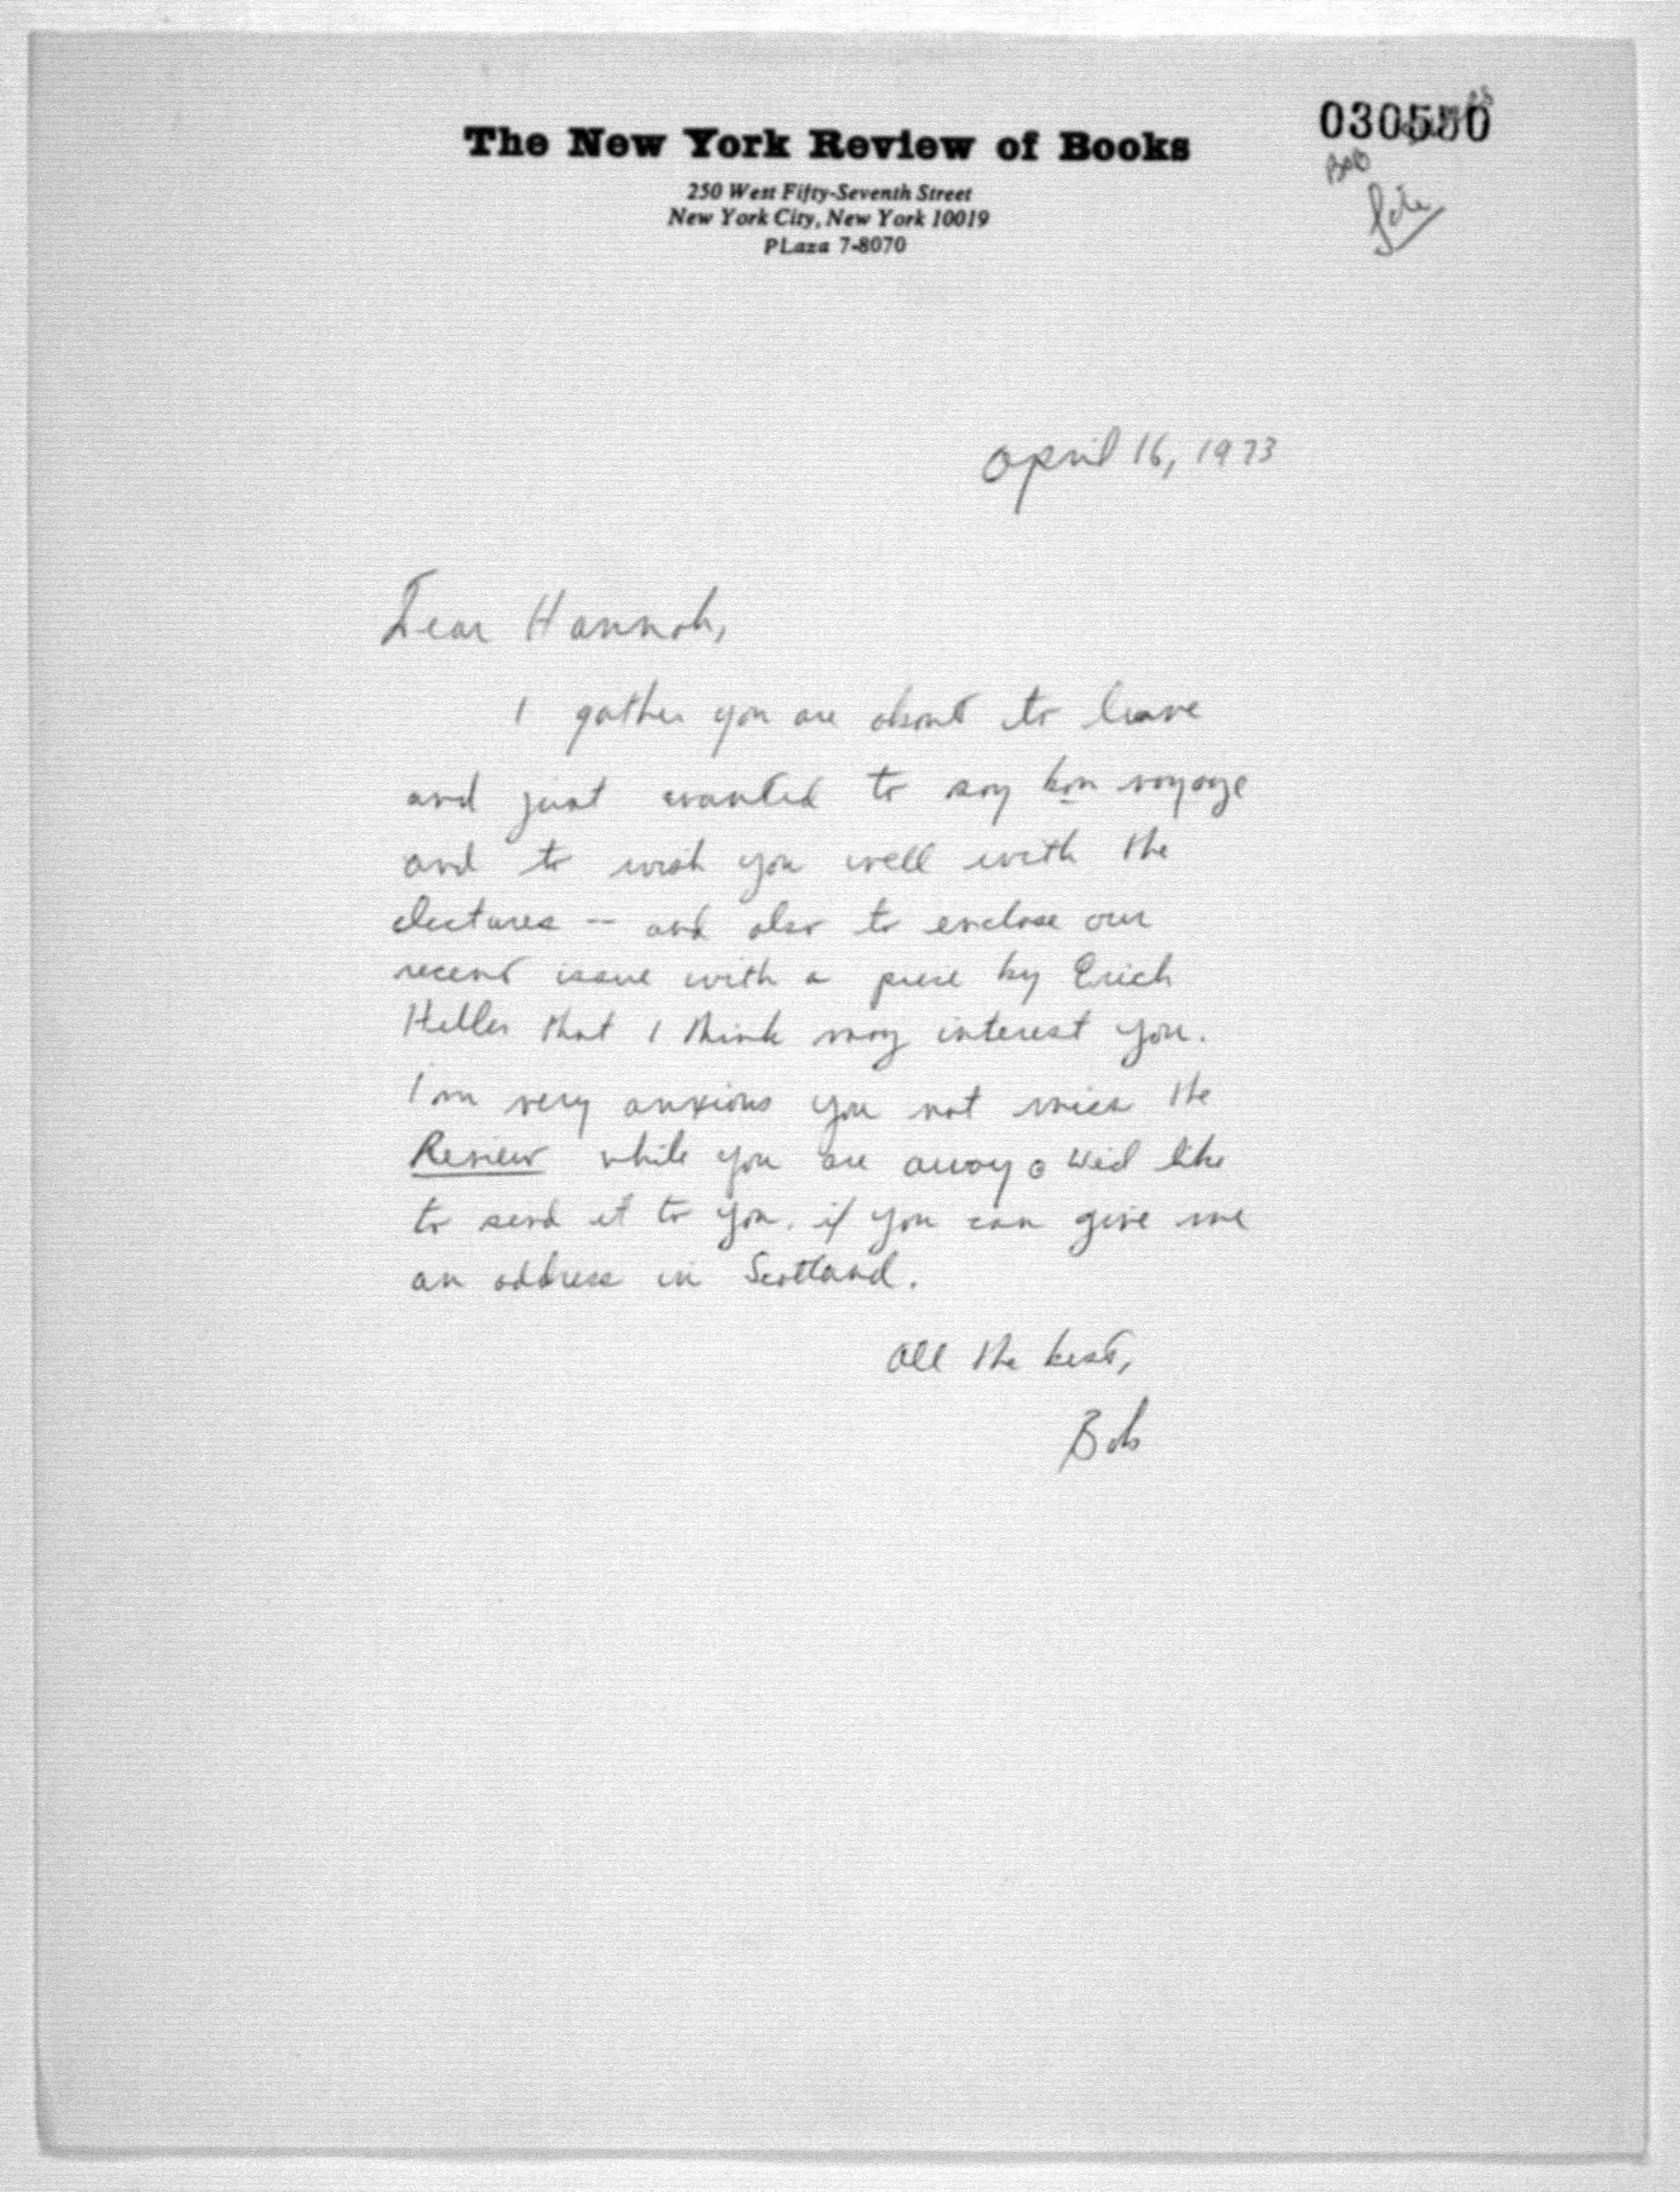 030550
The New York Review of Books
250 West Fifty-Seventh Street
New York City, New York 10019
PLaza 7-8070
april 16, 1973
Dear Hannah,
I gather you are about to leave
and just wanted to say bon voyage
and to wish you well with the
lectures -- and also to enclose our
recent issue with a piece by Erich
Heller that I think may interest you.
I'm very anxious you not miss the
Review while you are away. We'd like
to send it to you, if you can give me
an address in Scotland.
All the best,
Bob